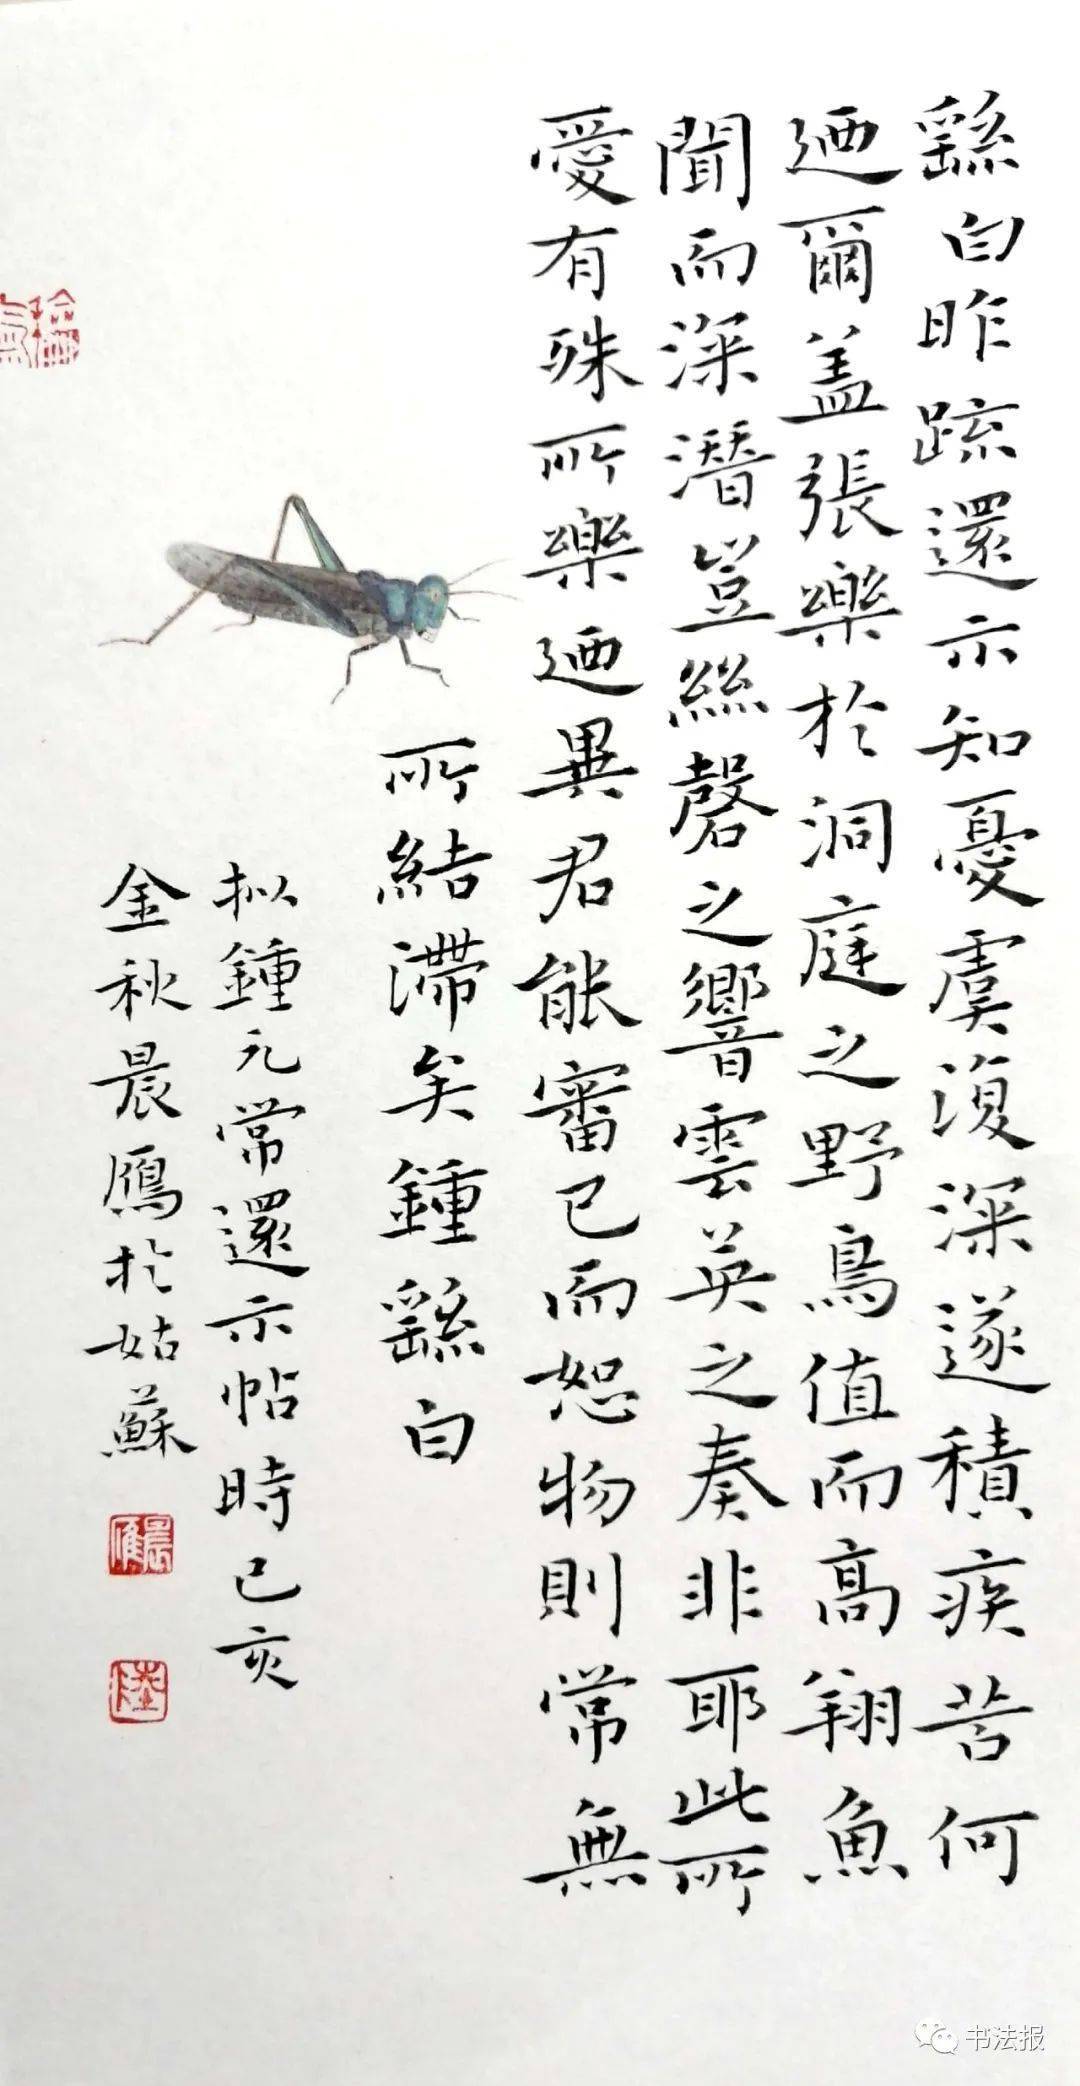 繇白昨疏還示知憂虞復深遂積疾苦何
迺爾蓋張樂於洞庭之野鳥值而高翔魚
聞而深潛豈絲磬之響雲英之奏非耶此所
愛有殊所樂迺異君能審己而恕物則常無
所結滯矣鍾繇白
拟鍾元常還示帖時己亥
金秋晨鴈於姑蘇
晨雁
陸
书法报